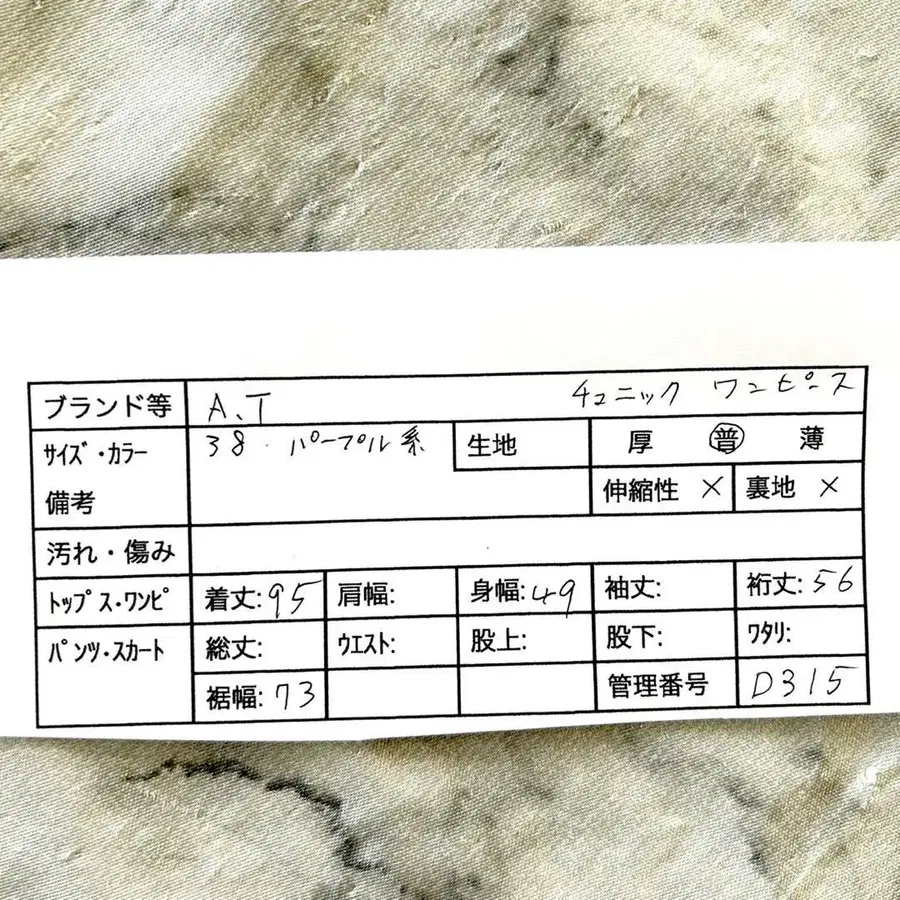 ブランド等 A.T チュニック ワンピース
サイズ・カラー 38・パープル系 生地 厚 普 薄
備考 伸縮性 × 裏地 ×
汚れ・傷み
トップス・ワンピ 着丈:95 肩幅: 身幅:49 袖丈: 裄丈:56
パンツ・スカート 総丈: ウエスト: 股上: 股下: ワタリ:
裾幅:73 管理番号 D315